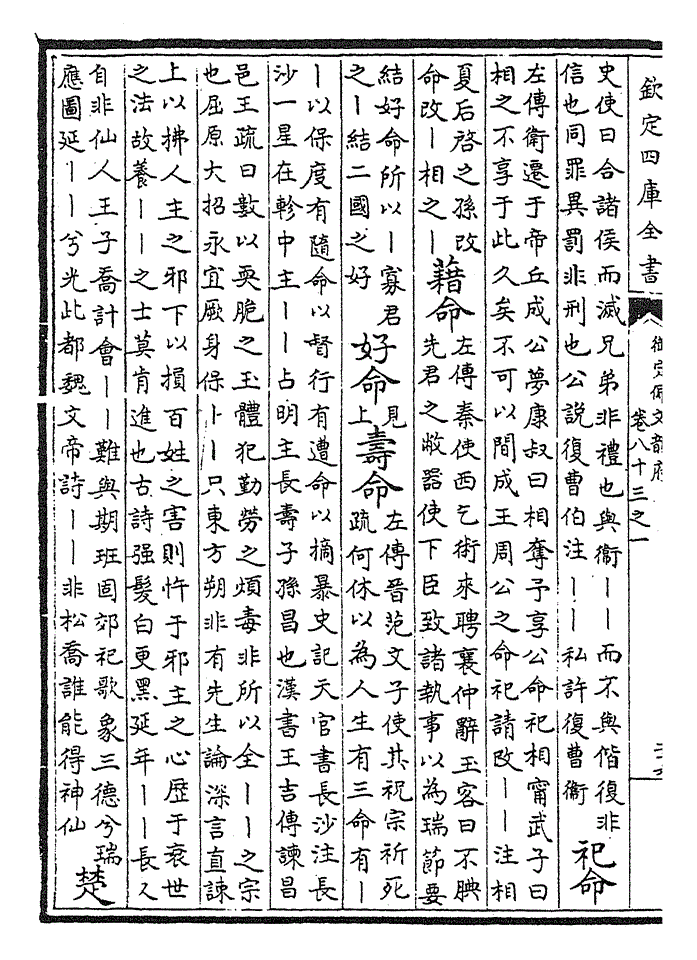 欽定四庫全書
御定佩文韻府
卷八十三之一
史使曰合諸侯而滅兄弟非禮也與衞丨丨而不與偕復非
信也同罪異罰非刑也公說復曹伯注丨丨私許復曹衞
祀命
左傳衞遷于帝丘成公夢康叔曰相奪予享公命祀相甯武子曰
相之不享于此久矣不可以間成王周公之命祀請改丨丨注相
夏后啓之孫改
命改丨相之丨
藉命
左傳秦使西乞術來聘襄仲辭玉客曰不腆
先君之敝器使下臣致諸執事以為瑞節要
結好命所以丨寡君
之丨結二國之好
好命
見
上
壽命
左傳晉范文子使其祝宗祈死
疏何休以為人生有三命有丨
丨以保度有隨命以督行有遭命以摘暴史記天官書長沙注長
沙一星在軫中主丨丨占明主長壽子孫昌也漢書王吉傳諫昌
邑王疏曰數以耎脆之玉體犯勤勞之煩毒非所以全丨丨之宗
也屈原大招永宜厥身保卜丨只東方朔非有先生論深言直諫
上以拂人主之邪下以損百姓之害則忤于邪主之心歷于衰世
之法故養丨丨之士莫肯進也古詩强髮白更黑延年丨丨長久
自非仙人王子喬計會丨丨難與期班固郊祀歌象三德兮瑞
應圖延丨丨兮光此都魏文帝詩丨丨非松喬誰能得神仙
楚